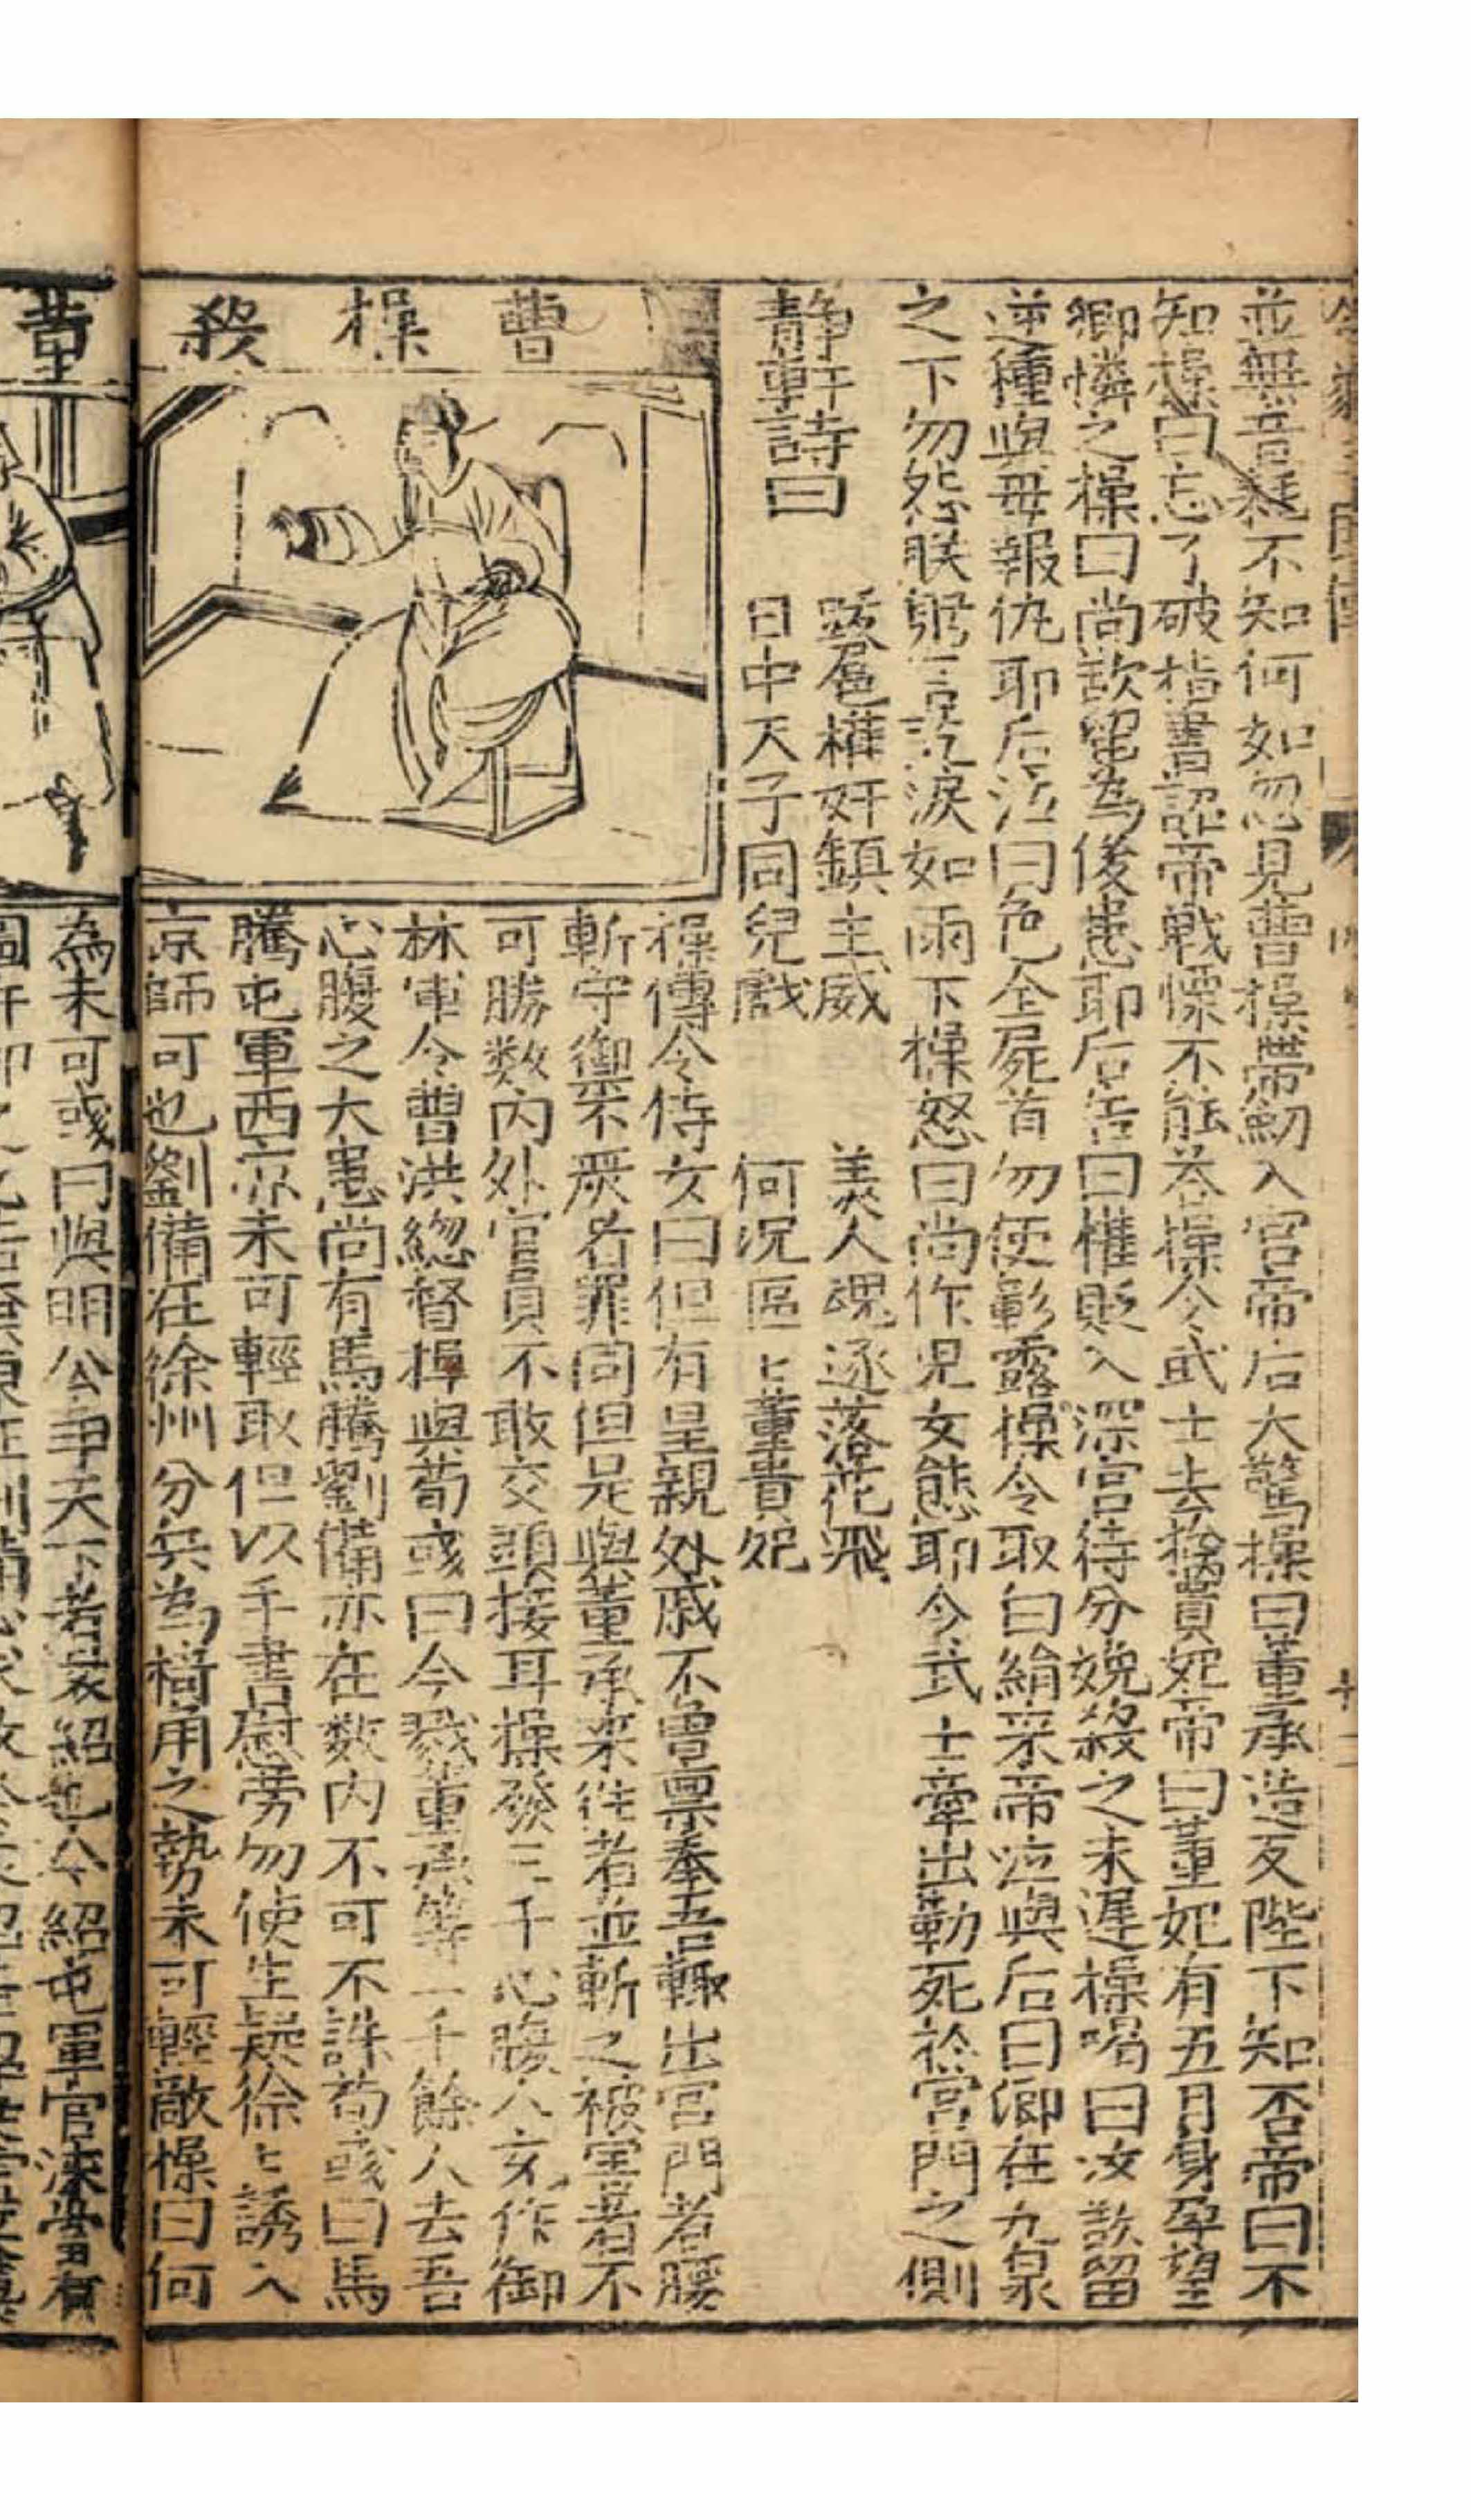 並無音耗不知何如忽見曹操帶劒入宮帝后大驚操曰董承造反陛下知否帝曰不
知操曰忘了破指書詔帝戰慄不能答操令武士去擒貴妃帝曰董妃有五月身孕望
卿憐之操曰尚欲留為後患耶后告曰權貶入深宮待分娩殺之未遲操喝曰汝欲留
逆種與母報仇耶后泣曰乞全屍首勿使彰露操令取白絹采帝泣與后曰卿在九泉
之下勿怨朕躬言訖淚如雨下操怒曰尚作兒女態耶令武士牽出勒死於宮門之側
靜軒詩曰
跋扈權奸鎮主威 美人魂逐落花飛
日中天子同兒戲 何況區〻董貴妃
曹操殺
操傳令侍女曰但有皇親外戚不曾稟奉吾輙出宮門者腰
斬守禦不嚴者罪同但是與董承來往者並斬之被害者不
可勝数內外官員不敢交頭接耳操發三千心腹人充作御
林軍令曹洪緫督操與荀彧曰今戮董承等一千餘人去吾
心腹之大患尚有馬騰劉備亦在数內不可不誅荀彧曰馬
騰屯軍西凉未可輕取但以手書慰勞勿使生疑徐〻誘入
京師可也劉備在徐州分兵為掎角之勢未可輕敵操曰何
董
為未可彧曰與明公爭天下者袁紹也今紹屯軍官渡常有